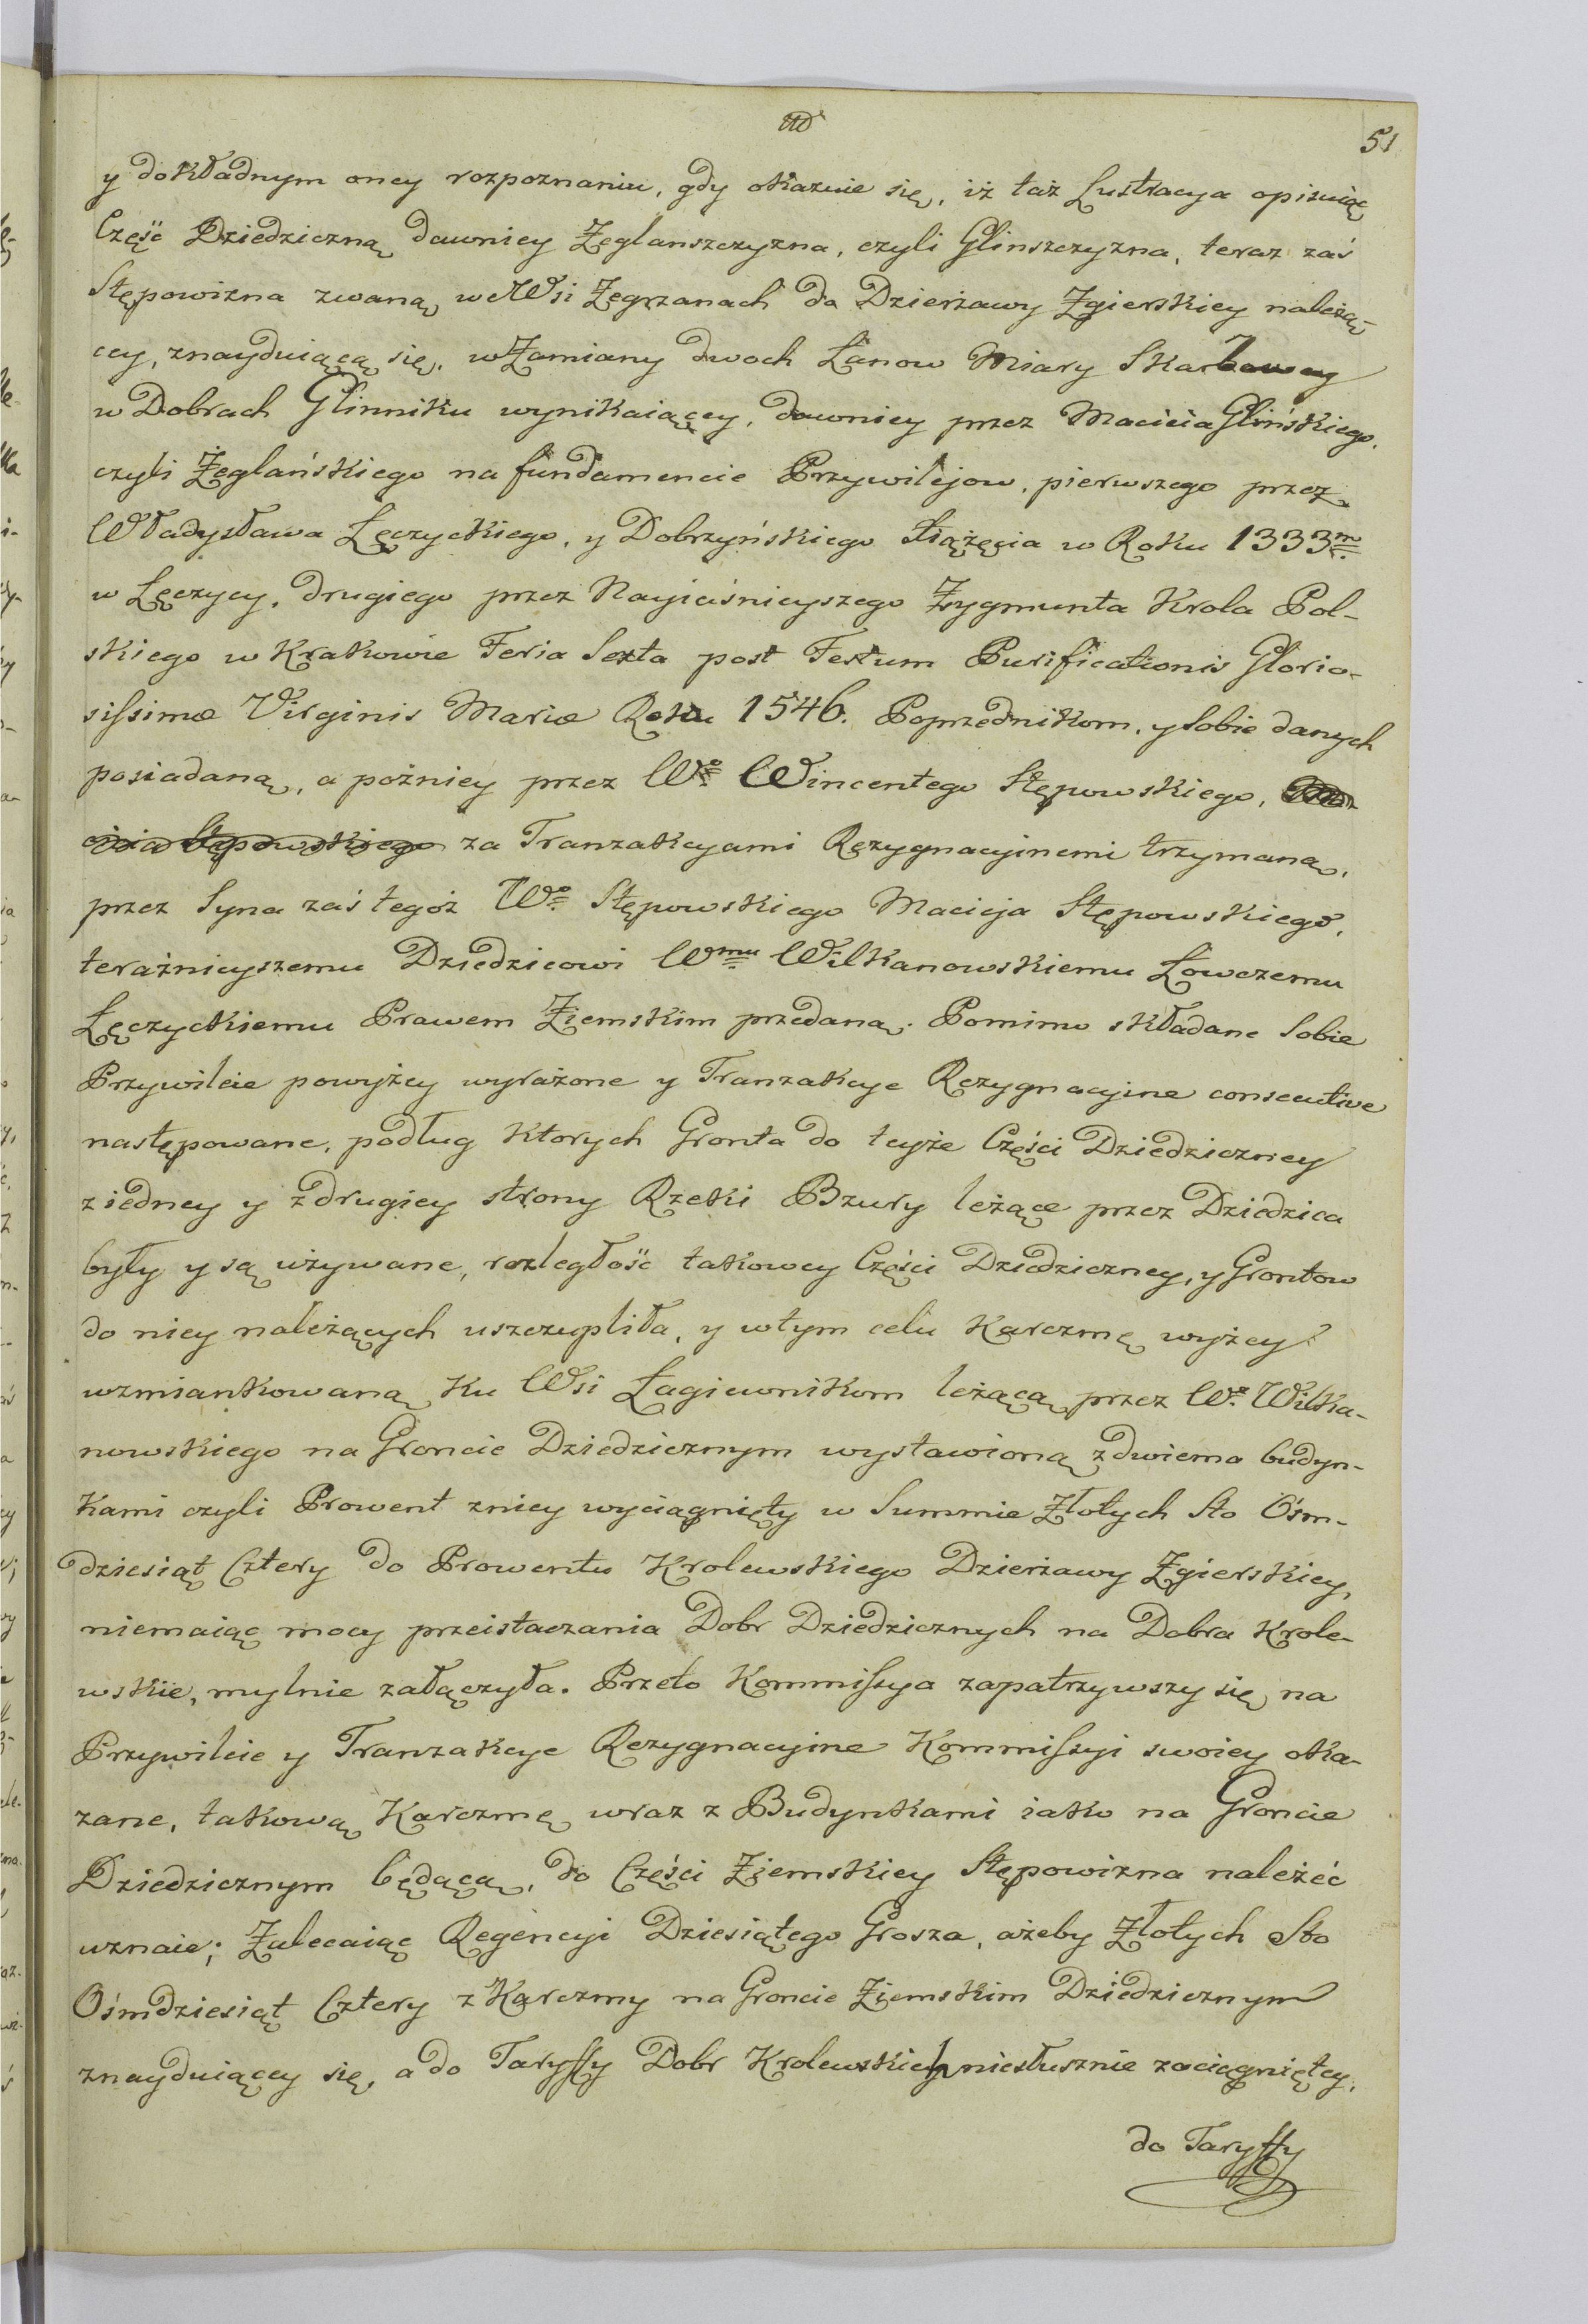 51
y dokładnym oney rozpoznaniu, gdy okazuie się, iż taż Lustracya opisuiąc
Część Dziedziczną dawniey Żeglanszczyzna, czyli Glinszczyzna, teraz zaś
Stępowizna zwaną, we Wsi Zegrzanach do Dzierżawy Zgierskiey należą-
cey, znayduiącą się, w Zamiany dwoch Łanow Miary Skarbowey
w Dobrach Glinniku wynikaiącey, dawniey przez Macieia Glińskiego,
czyli Żeglańskiego na fundamencie Przywilejow, pierwszego przez
Władysława Łęczyckiego, y Dobrzyńskiego Xiążęcia w Roku 1333m
w Łęczycy, drugiego przez Nayiaśnieyszego Zygmunta Krola Pol-
skiego w Krakowie Feria Sexta post Festum Purificationis Glorio-
sissimæ Virginis Mariæ Roku 1546. Poprzednikom, y sobie danych
posiadaną, a pożniey przez Wo Wincentego Stępowskiego,
za Tranzakcyami Rezygnacyinemi trzymaną,
przez Syna zaś tegoż Wo Stępowskiego Macieja Stępowskiego,
terażnieyszemu Dziedzicowi Wmu Wilkanowskiemu Łowczemu
Łęczyckiemu Prawem Ziemskim przedaną. Pomimo składane sobie
Przywileie powyżey wyrażone y Tranzakcye Rezygnacyine consecutive
następowane, podług ktorych Gronta do teyże Części Dziedziczney
z iedney y z drugiey strony Rzeki Bzury leżące przez Dziedzica
były y są używane, rozległość takowey Części Dziedziczney, y Grontow
do niey należących uszczupliła, y w tym celu Karczmę wyżey
wzmiankowaną ku Wsi Łagiewnikom leżącą przez Wo Wilka-
nowskiego na Groncie Dziedzicznym wystawioną z dwiema budyn-
kami czyli Prowent z niey wyciągnięty w Summie Złotych Sto Ośm-
dziesiąt Cztery do Prowentu Krolewskiego Dzierżawy Zgierskiey,
niemaiąc mocy przeistaczania Dobr Dziedzicznych na Dobra Krole-
wskie, mylnie załączyła. Przeto Kommissya zapatrzywszy się na
Przywileie y Tranzakcye Rezygnacyine Kommissyi swoiey oka-
zane, takową Karczmę wraz z Budynkami iako na Groncie
Dziedzicznym będącą, do Części Ziemskiey Stępowizna należeć
uznaie; Zalecaiąc Regencyi Dziesiątego Grosza, ażeby Złotych Sto
Ośmdziesiąt Cztery z Karczmy na Groncie Ziemskim Dziedzicznym
znayduiącey się, a do Taryffy Dobr Krolewskich niesłusznie zaciągniętey,
do Taryffy